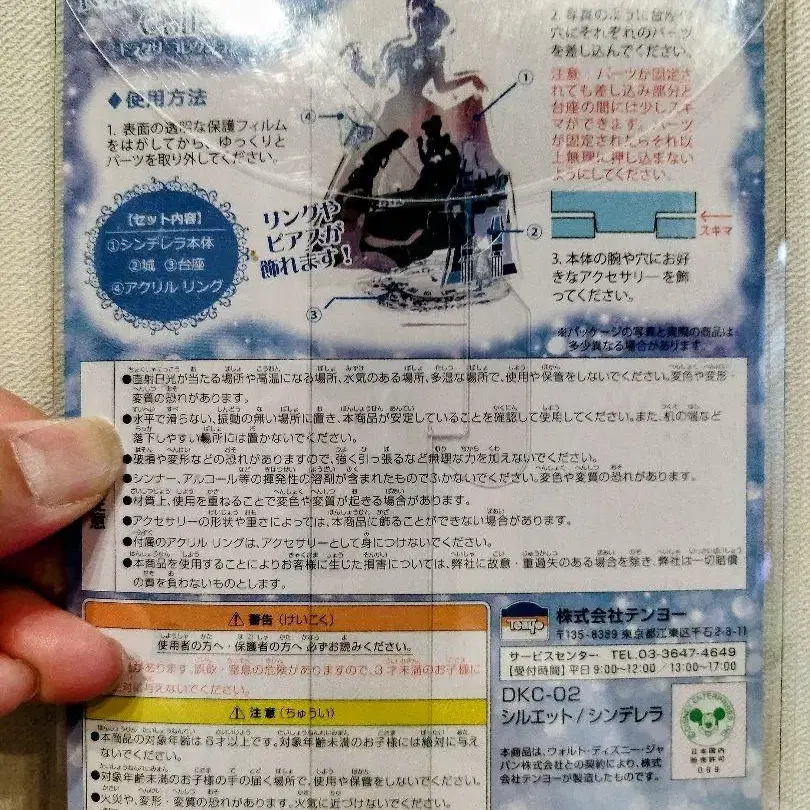 2. 写真のように台座の
穴にそれぞれのパーツ
を差し込んでください。
注意：パーツが固定さ
れても差し込み部分と
台座の間には少しスキ
マができます。パーツ
が固定されたらそれ以
上無理に押し込まない
ようにしてください。
◆使用方法
1. 表面の透明な保護フィルム
をはがしてから、ゆっくりと
パーツを取り外してください。
【セット内容】
①シンデレラ本体
②城 ③台座
④アクリル リング
リングや
ピアスが
飾れます!
①
④
②
③
スキマ
3. 本体の腕や穴にお好
きなアクセサリーを飾
ってください。
※パッケージの写真と実際の商品は
多少異なる場合があります。
●直射日光が当たる場所や高温になる場所、水気のある場所、多湿な場所で、使用や保管をしないでください。変色や変形・
変質の恐れがあります。
●水平で滑らない、振動の無い場所に置き、本商品が安定していることを確認して使用してください。また、机の端など
落下しやすい場所には置かないでください。
●破損や変形などの恐れがありますので、強く引っ張るなど無理な力を加えないでください。
●シンナー、アルコール等の揮発性の溶剤が含まれたものでふかないでください。変色や変質の恐れがあります。
●材質上、使用を重ねることで変色や変質が起きる場合があります。
●アクセサリーの形状や重さによっては、本商品に飾ることができない場合があります。
●付属のアクリル リングは、アクセサリーとして身につけないでください。
●本商品を使用することによりお客様に生じた損害については、弊社に故意・重過失のある場合を除き、弊社は一切賠償
の責を負わないものとします。
⚠警告(けいこく)
使用者の方へ・保護者の方へ 必ずお読みください。
があります。誤飲・窒息の危険がありますので、3才未満のお子様に
対に与えないでください。
⚠注意(ちゅうい)
●本商品の対象年齢は6才以上です。対象年齢未満のお子様には絶対に与え
ないでください。
●対象年齢未満のお子様の手の届く場所で、使用や保管をしないでください。
●火災や、変形・変質の恐れがあります。火気に近づけないでください。
Tenyo
株式会社テンヨー
〒135-8389 東京都江東区千石2-8-11
サービスセンター TEL.03-3647-4649
【受付時間】平日 9:00~12:00/13:00~17:00
DKC-02
シルエット/シンデレラ
本商品は、ウォルト・ディズニー・ジャ
パン株式会社との契約により、株式
会社テンヨーが製造したものです。
日本国内
販売許可
069